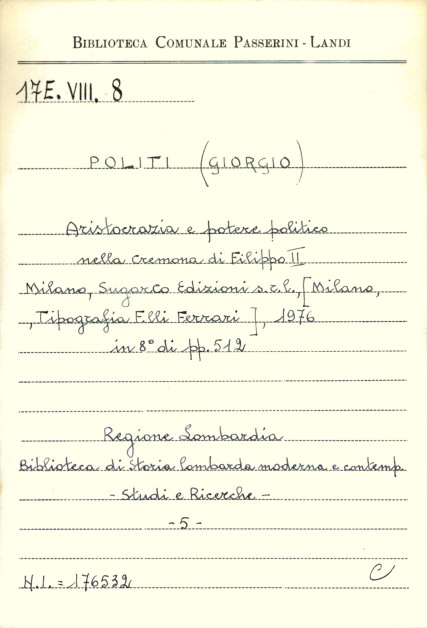 BIBLIOTECA COMUNALE PASSERINI - LANDI
17E. VIII. 8
POLITI (GIORGIO)
Aristocrazia e potere politico
nella Cremona di Filippo II
Milano, SugarCo Edizioni s.r.l., [Milano,
, Tipografia F.lli Ferrari], 1976
in 8° di pp. 512
Regione Lombardia
Biblioteca di Storia lombarda moderna e contemp.
- Studi e Ricerche -
- 5 -
N.I. = 176532
C